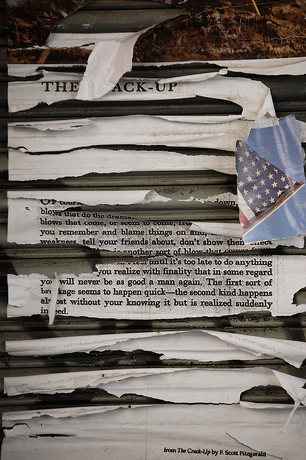 THE CRACK-UP
down,
blows that do the
blows that come, or seem to come,
you remember and blame things on and,
weakness, tell your friends about, don't show their
another sort of blow that
until it's too late to do anything
you realize with finality that in some regard
you will never be as good a man again. The first sort of
breakage seems to happen quick—the second kind happens
almost without your knowing it but is realized suddenly
indeed.
from The Crack-Up by F. Scott Fitzgerald